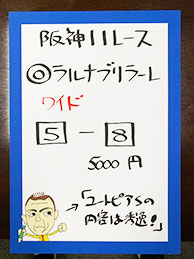 阪神11レース
◎ラルナブリラーレ
ワイド
5 - 8
5000円
→「ユートピアSの
内容は秀逸!」